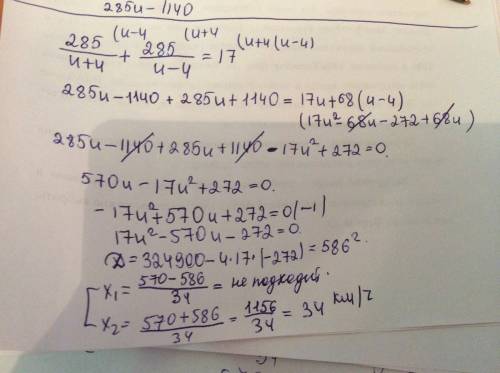 285u-1140
(u-4 (u+4 (u+4(u-4)
285/u+4 + 285/u-4 = 17
285u-1140+285u+1140=17u+68(u-4)
(17u²-68u-272+68u)
285u-1140+285u+1140-17u²+272=0.
570u-17u²+272=0.
-17u²+570u+272=0(-1)
17u²-570u-272=0.
D=324900-4·17·(-272)=586².
x₁=570-586/34= не подходит.
x₂=570+586/34=1156/34=34 км/ч